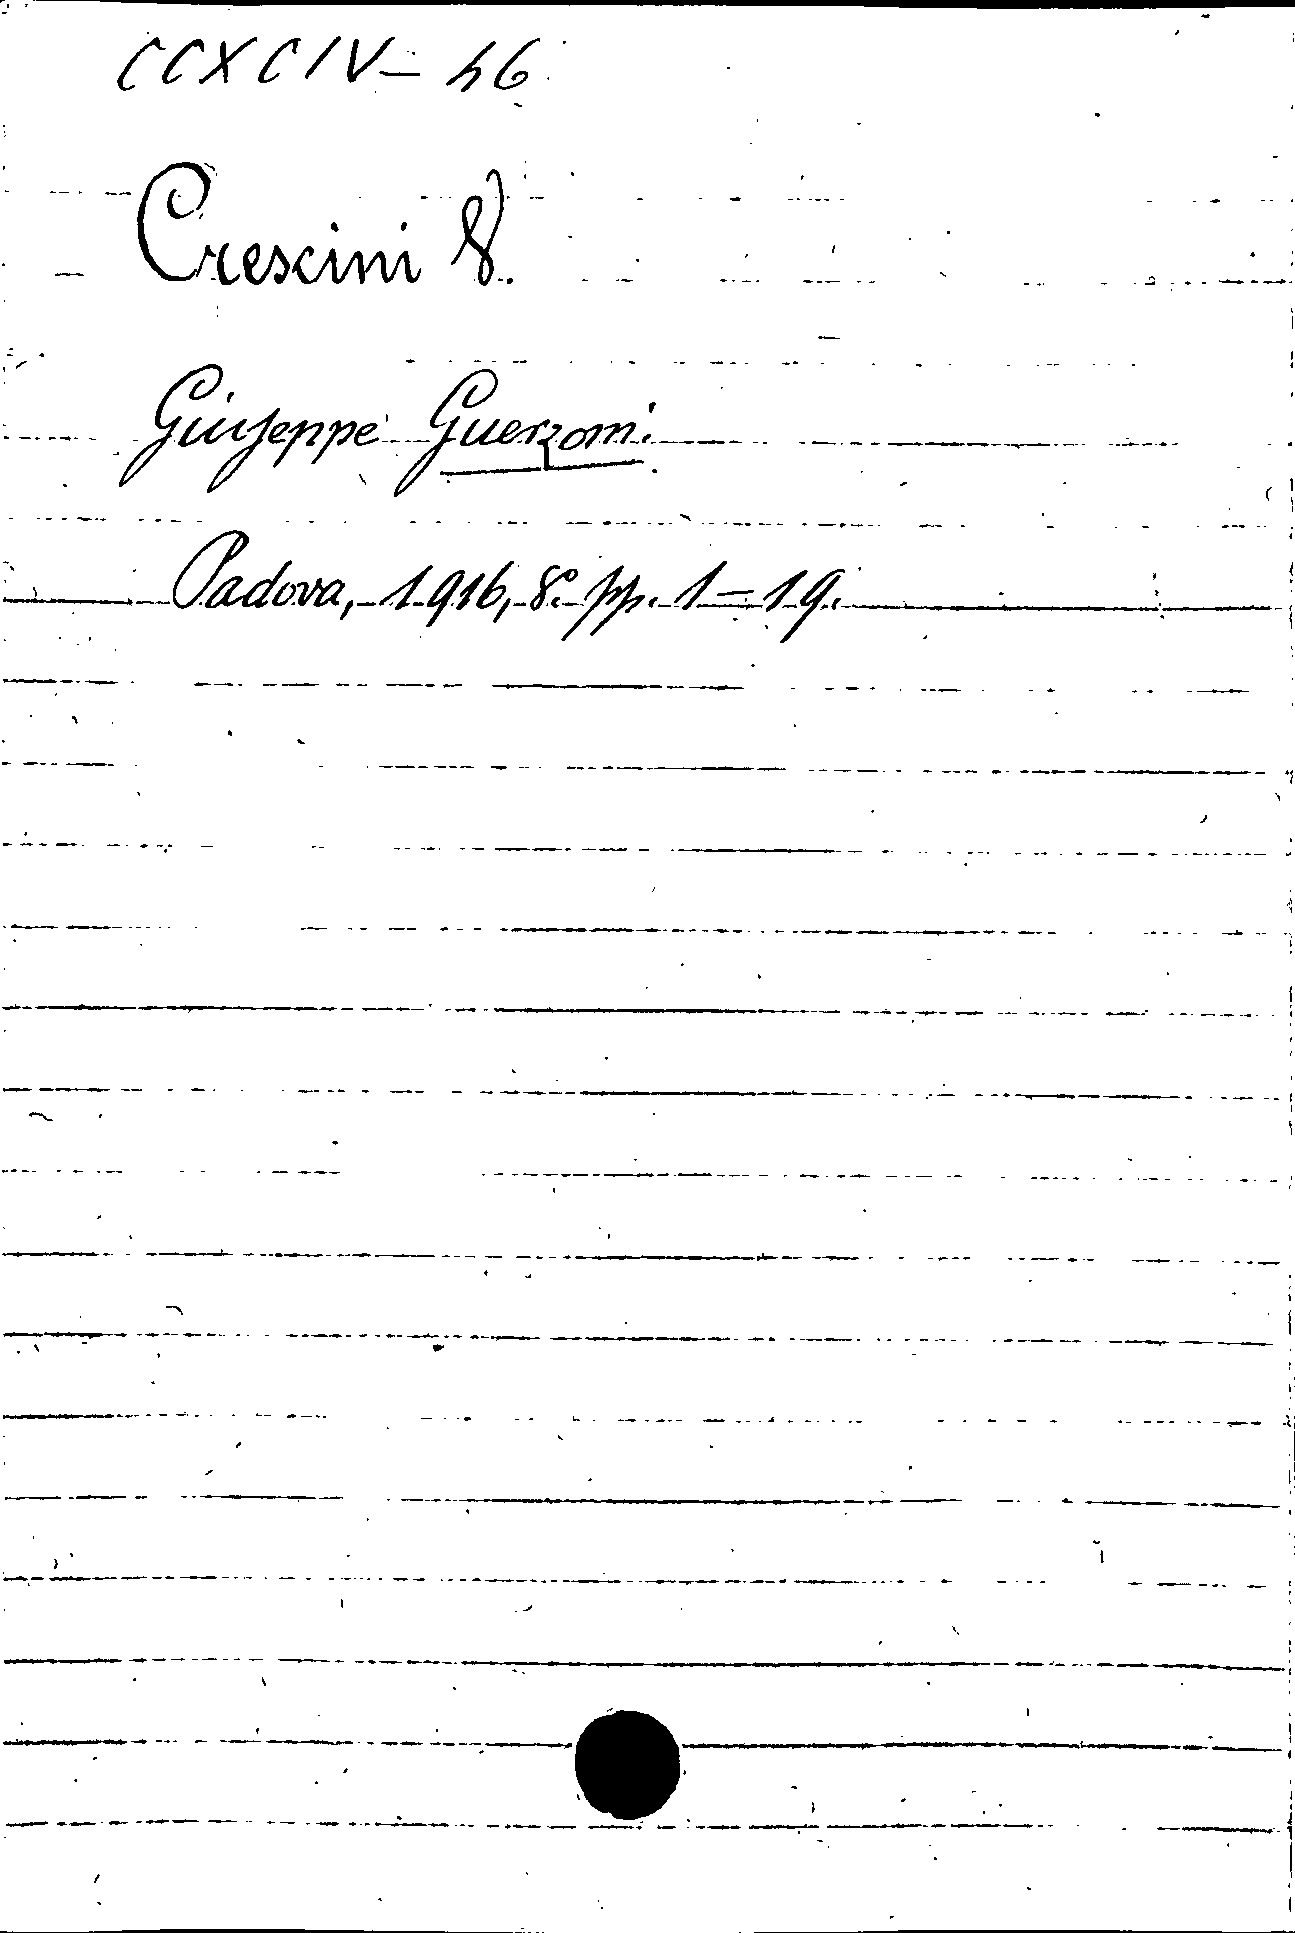 CCXCIV - 46
Crescini V.
Giuseppe Guerzoni.
Padova, 1916, 8º. pp. 1-19.